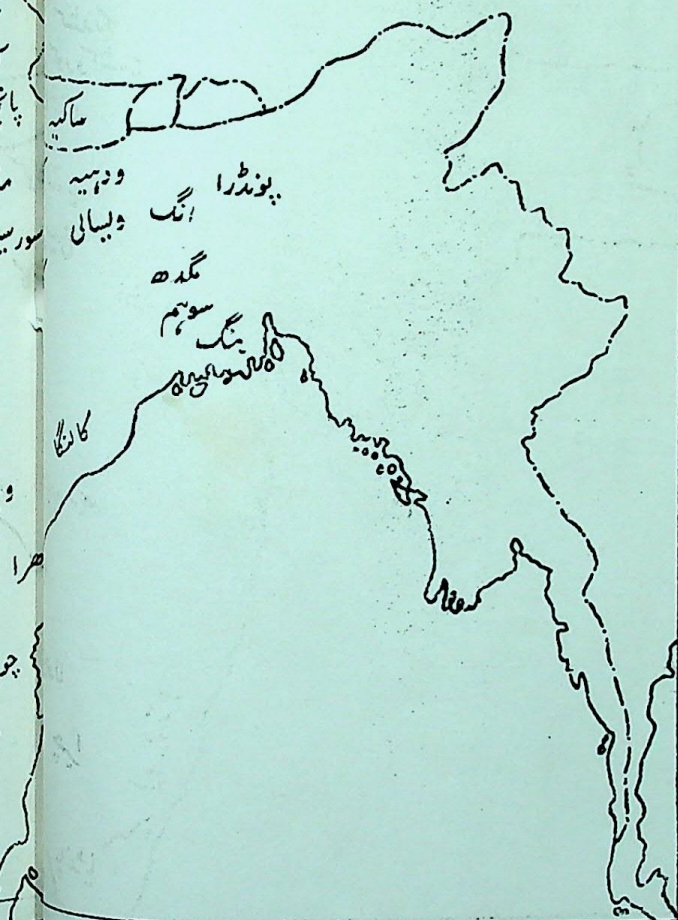 ساکیہ
ودہیہ
پونڈرا
انگ
ویسالی
مگدھ
سوہم
بنگ
کالنگا
و
ھرا
چو